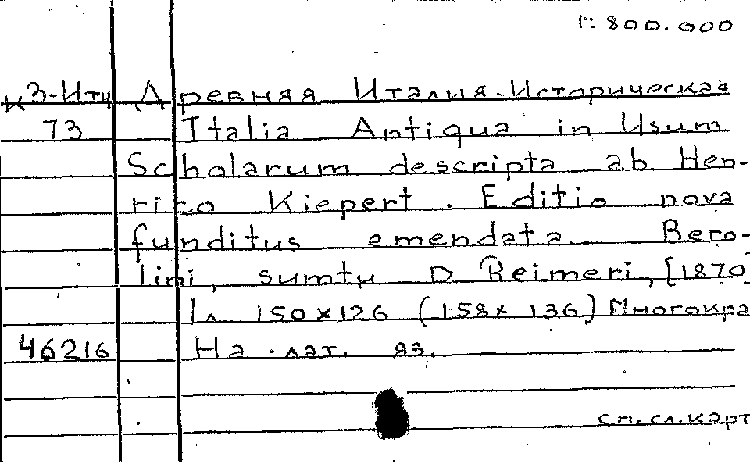 1:800.000
К3-Ити Древняя Италия-Историческая
73 Italia Antiqua in Usum
Scholarum descripta ab Hen-
rico Kiepert. Editio nova
funditus emendata. Bero-
lini, sumtu D Reimeri, [1870]
1л 150x126 (158x136) Многокра
46216 На лат. яз.
см.сл.карт